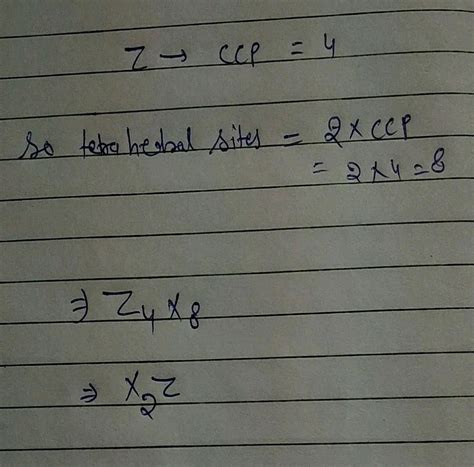 Z → CCP = 4
so tetrahedral sites = 2 × CCP
= 2 × 4 = 8
⇒ Z₄X₈
⇒ X₂Z